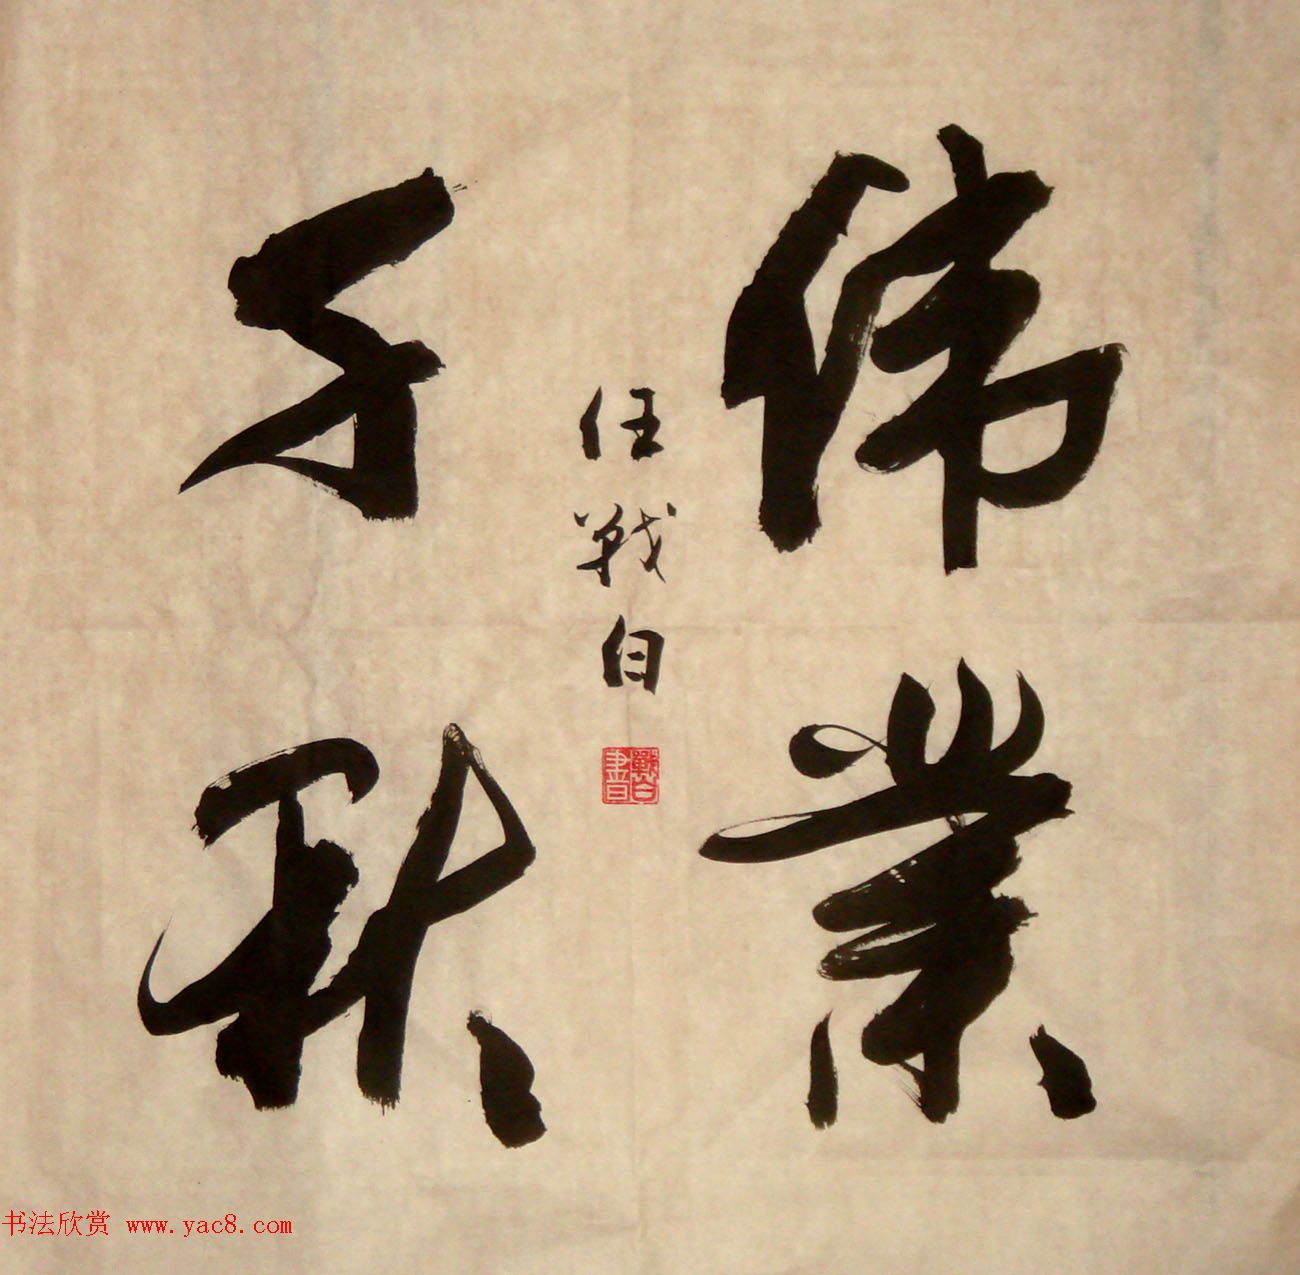 偉業
千秋
任戰白
戰白書
书法欣赏 www.yac8.com